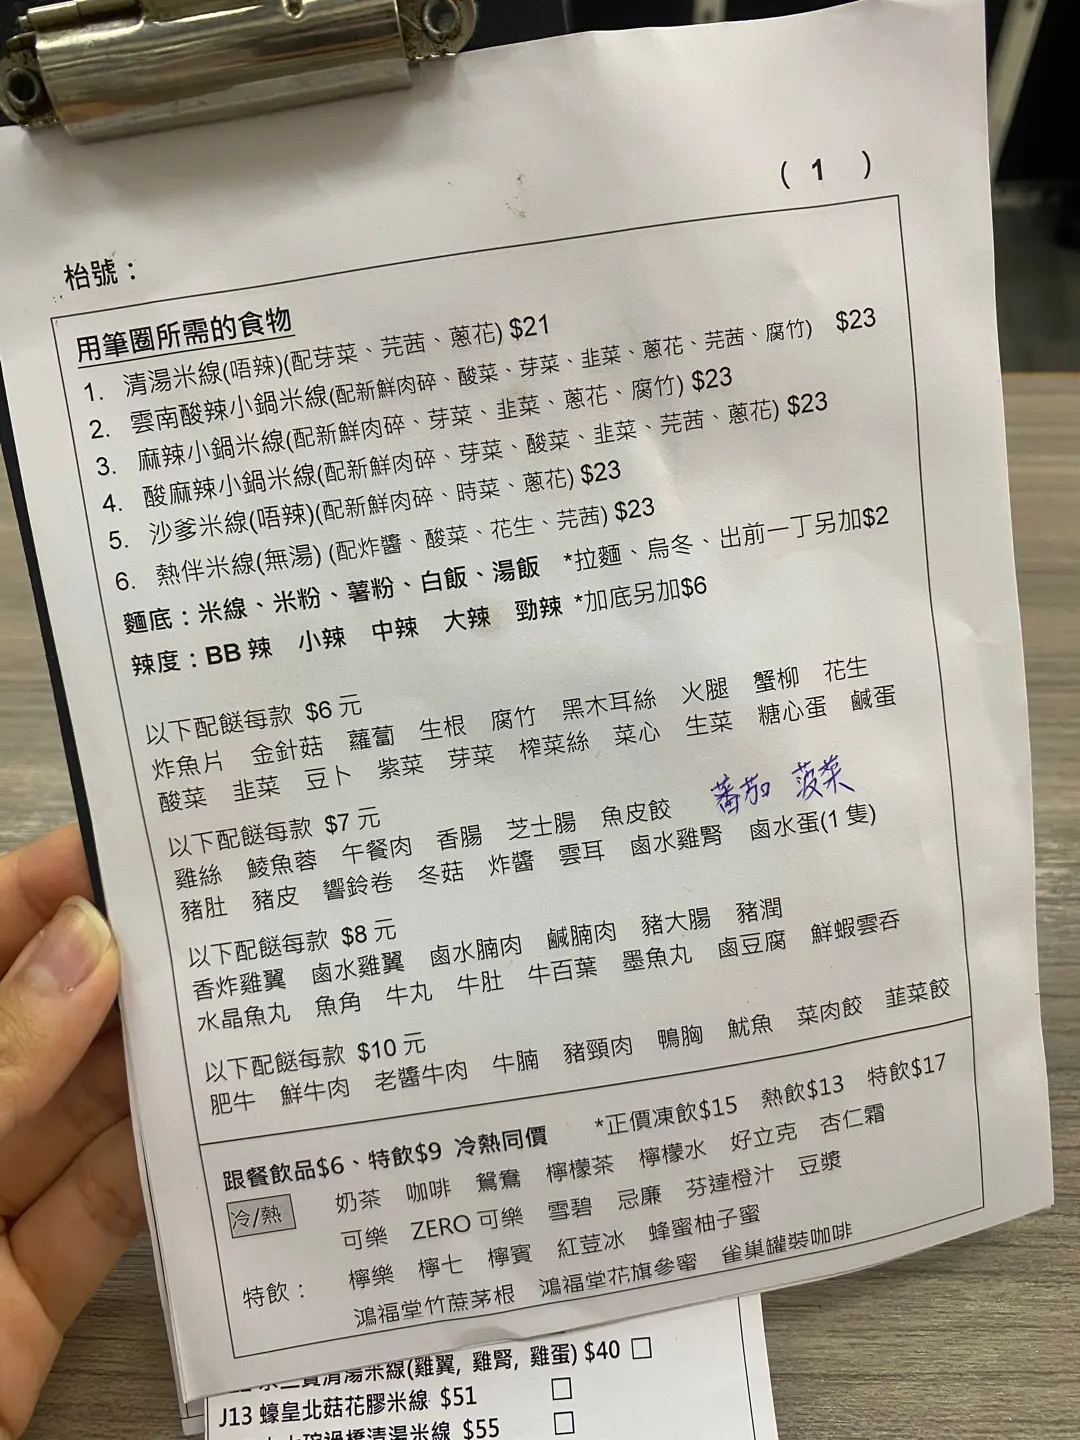 ( 1 )
枱號：
用筆圈所需的食物
1. 清湯米線(唔辣)(配芽菜、芫茜、蔥花) $21
2. 雲南酸辣小鍋米線(配新鮮肉碎、酸菜、芽菜、韭菜、蔥花、芫茜、腐竹) $23
3. 麻辣小鍋米線(配新鮮肉碎、芽菜、韭菜、蔥花、腐竹) $23
4. 酸麻辣小鍋米線(配新鮮肉碎、芽菜、酸菜、韭菜、芫茜、蔥花) $23
5. 沙爹米線(唔辣)(配新鮮肉碎、時菜、蔥花) $23
6. 熱伴米線(無湯) (配炸醬、酸菜、花生、芫茜) $23
麵底：米線、米粉、薯粉、白飯、湯飯 *拉麵、烏冬、出前一丁另加$2
辣度：BB 辣 小辣 中辣 大辣 勁辣 *加底另加$6
以下配餸每款 $6 元
炸魚片 金針菇 蘿蔔 生根 腐竹 黑木耳絲 火腿 蟹柳 花生
酸菜 韭菜 豆卜 紫菜 芽菜 榨菜絲 菜心 生菜 糖心蛋 鹹蛋
以下配餸每款 $7 元 蕃茄 菠菜
雞絲 鯪魚蓉 午餐肉 香腸 芝士腸 魚皮餃
豬肚 豬皮 響鈴卷 冬菇 炸醬 雲耳 鹵水雞腎 鹵水蛋(1 隻)
以下配餸每款 $8 元
香炸雞翼 鹵水雞翼 鹵水腩肉 鹹腩肉 豬大腸 豬潤
水晶魚丸 魚角 牛丸 牛肚 牛百葉 墨魚丸 鹵豆腐 鮮蝦雲吞
以下配餸每款 $10 元
肥牛 鮮牛肉 老醬牛肉 牛腩 豬頸肉 鴨胸 魷魚 菜肉餃 韮菜餃
跟餐飲品$6、特飲$9 冷熱同價 *正價凍飲$15 熱飲$13 特飲$17
冷/熱 奶茶 咖啡 鴛鴦 檸檬茶 檸檬水 好立克 杏仁霜
可樂 ZERO 可樂 雪碧 忌廉 芬達橙汁 豆漿
特飲： 檸樂 檸七 檸賓 紅荳冰 蜂蜜柚子蜜
鴻福堂竹蔗茅根 鴻福堂花旗參蜜 雀巢罐裝咖啡
清湯米線(雞翼, 雞腎, 雞蛋) $40 □
J13 蠔皇北菇花膠米線 $51 □
過橋清湯米線 $55 □